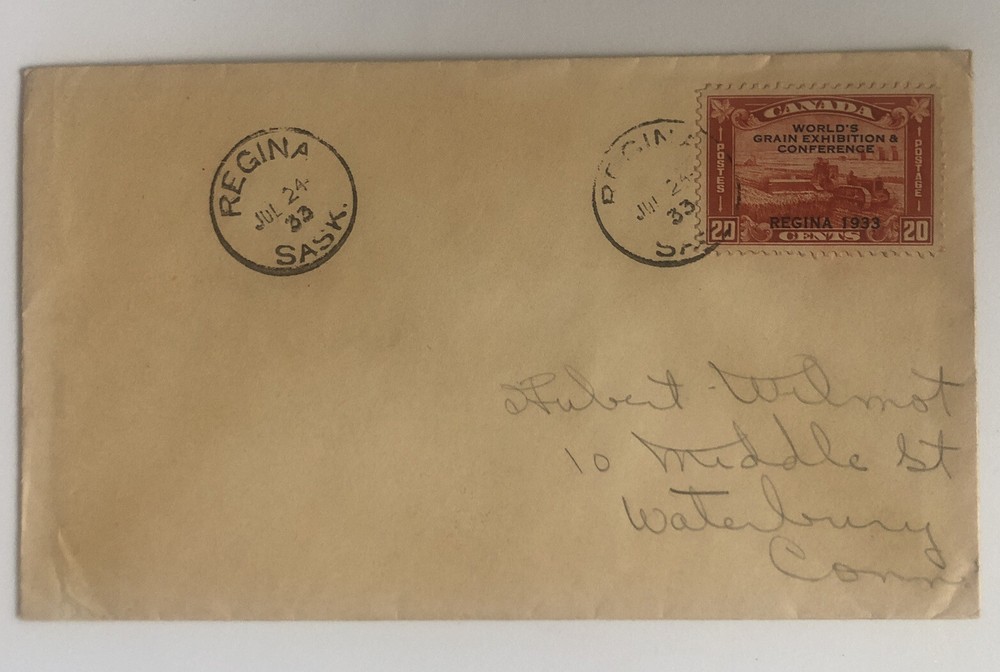 REGINA
JUL 24
33
SASK.
REGINA
JUL 24
33
SA
CANADA
WORLD'S
GRAIN EXHIBITION &
CONFERENCE
POSTES
POSTAGE
REGINA 1933
20 CENTS 20
Hubert Wilmot
10 Middle St
Waterbury
Conn